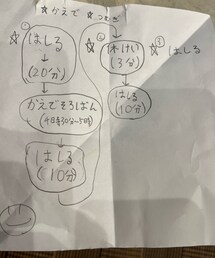 ☆かえで ☆つむぎ
☆①
はしる
↓
(20分)
↓
かえでそろばん
(4時30分~5時)
↓
はしる
(10分)
☆②
休けい
(3分)
↓
はしる
(10分)
☆③
はしる